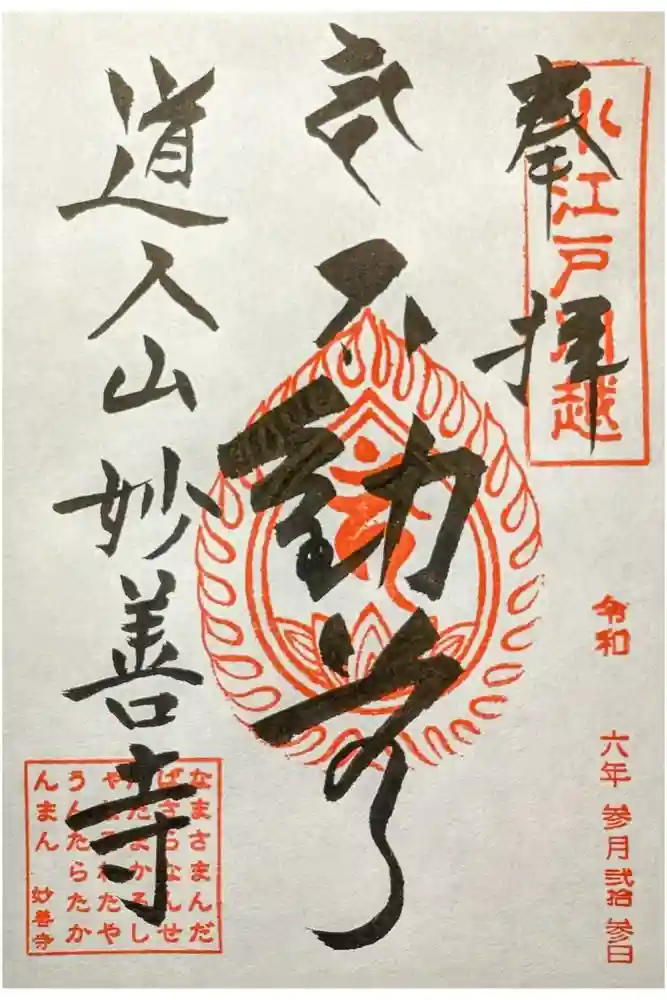 奉拝
小江戸川越
令和 六年 参月 弐拾参日
不動尊
道入山 妙善寺
なまさまんだ
ばさらなんせ
んだまかろし
やなそわたや
うんたらたか
んまん 妙善寺